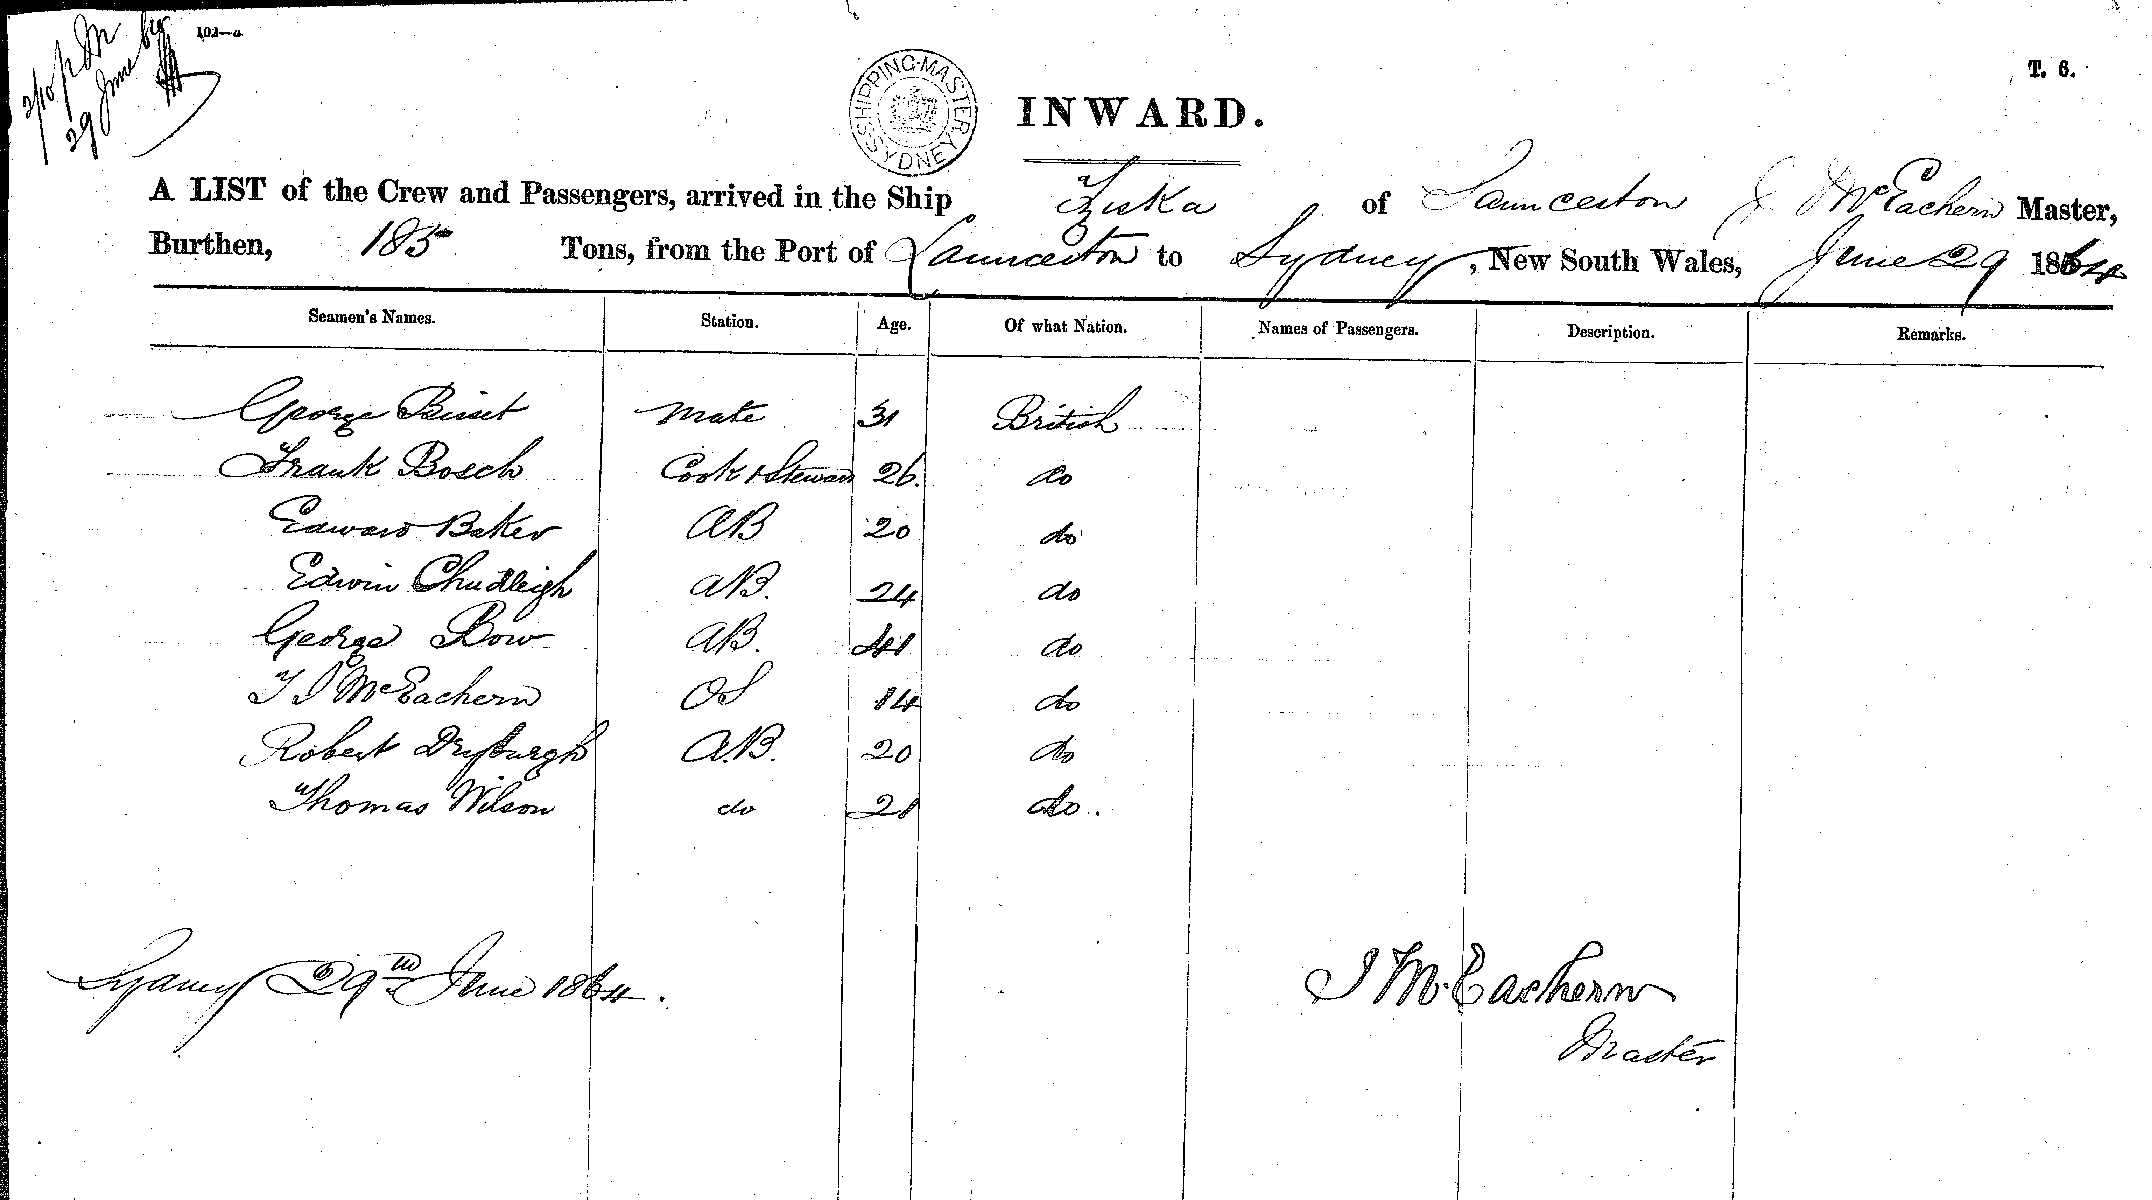 2/10 p M
29 June 64
102—a
T. 6.
SHIPPING MASTER SYDNEY
INWARD.
A LIST of the Crew and Passengers, arrived in the Ship Ziska of Launceston J McEachern Master,
Burthen, 185 Tons, from the Port of Launceston to Sydney, New South Wales, June 29 1864
Seamen's Names. Station. Age. Of what Nation. Names of Passengers. Description. Remarks.
George Bisset Mate 31 British
Frank Bosch Cook & Steward 26. do
Edward Baker AB 20 do
Edwin Chudleigh AB. 24 do
George Bow AB. 41 do
McEachern OS 14 do
Robert Dryburgh A.B. 20 do
Thomas Wilson do 21 do.
Sydney 29th June 1864.
J McEachern
Master